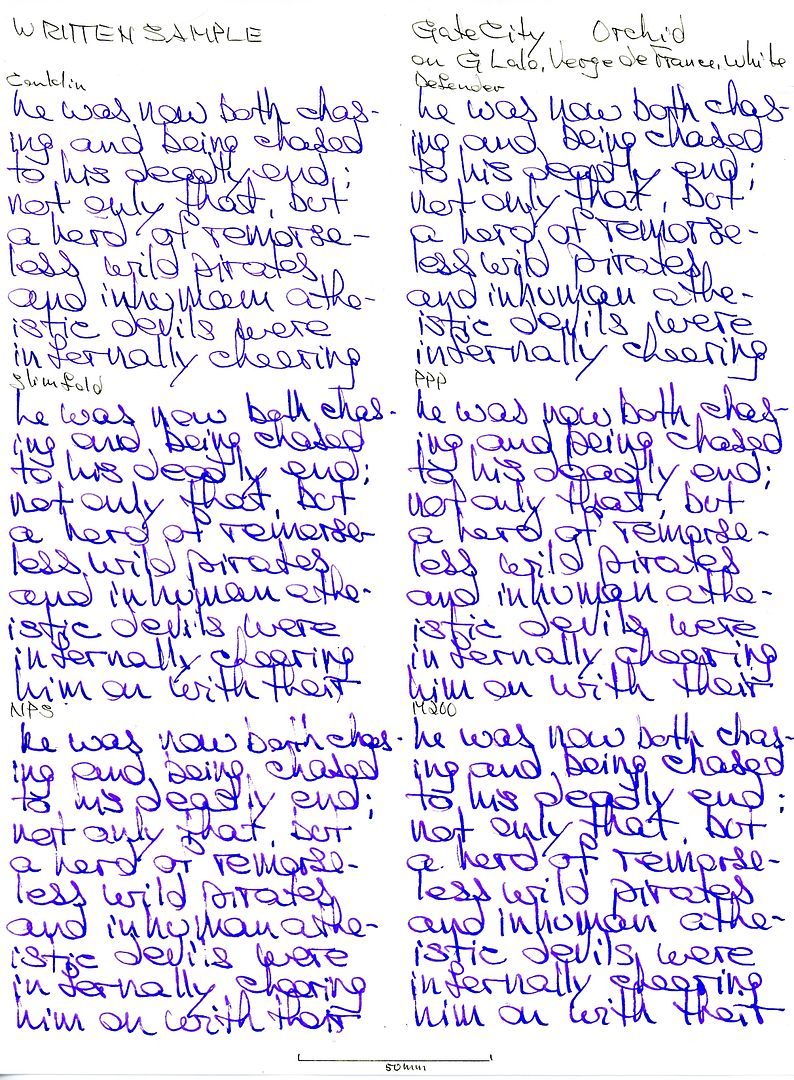 WRITTEN SAMPLE
GateCity Orchid
on G Lalo, Verge de France, White
Conklin
he was now both chas-
ing and being chased
to his deadly end;
not only that, but
a herd of remorse-
less wild pirates
and inhuman athe-
istic devils were
infernally cheering
Defender
he was now both chas-
ing and being chased
to his deadly end;
not only that, but
a herd of remorse-
less wild pirates
and inhuman athe-
istic devils were
infernally cheering
Slimfold
he was now both chas-
ing and being chased
to his deadly end;
not only that, but
a herd of remorse-
less wild pirates
and inhuman athe-
istic devils were
infernally cheering
him on with their
PPP
he was now both chas-
ing and being chased
to his deadly end;
not only that, but
a herd of remorse-
less wild pirates
and inhuman athe-
istic devils were
infernally cheering
him on with their
NPS
he was now both chas-
ing and being chased
to his deadly end;
not only that, but
a herd of remorse-
less wild pirates
and inhuman athe-
istic devils were
infernally cheering
him on with their
M200
he was now both chas-
ing and being chased
to his deadly end;
not only that, but
a herd of remorse-
less wild pirates
and inhuman athe-
istic devils were
infernally cheering
him on with their
50mm